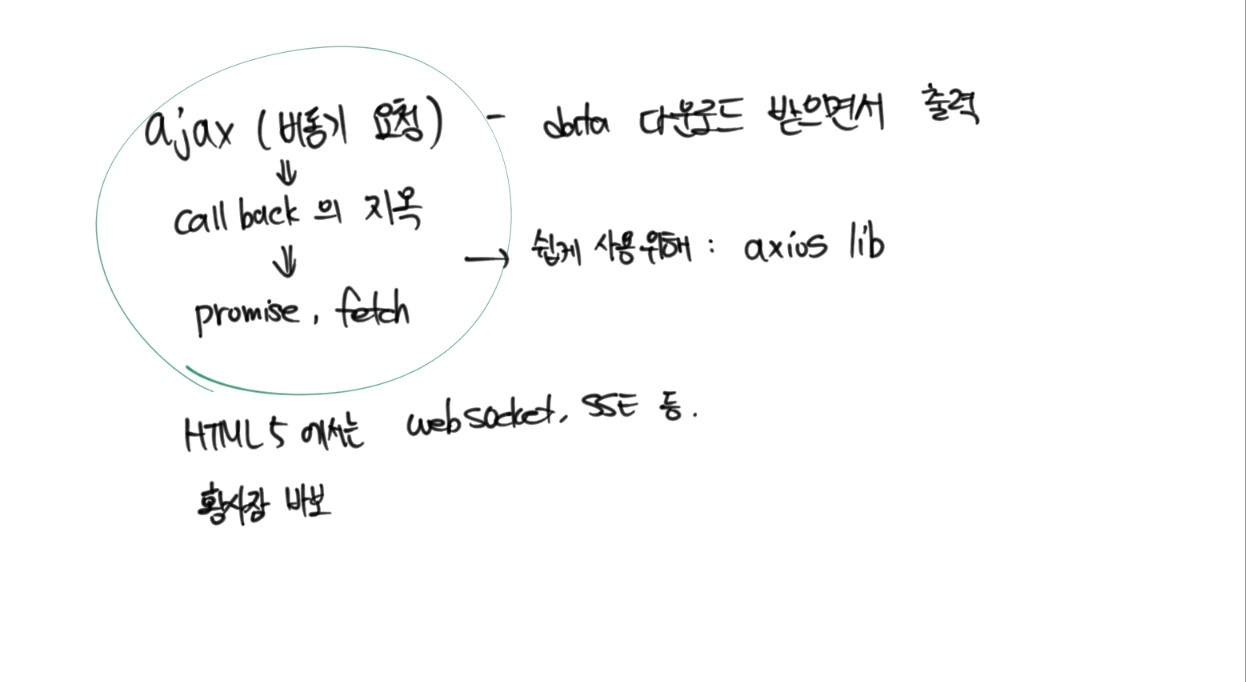 ajax (비동기 요청) - data 다운로드 받으면서 출력
⇓
callback의 지옥
⇓
promise, fetch
→ 쉽게 사용위해 : axios lib
HTML5 에서는 websocket, SSE 등.
황사장 바보